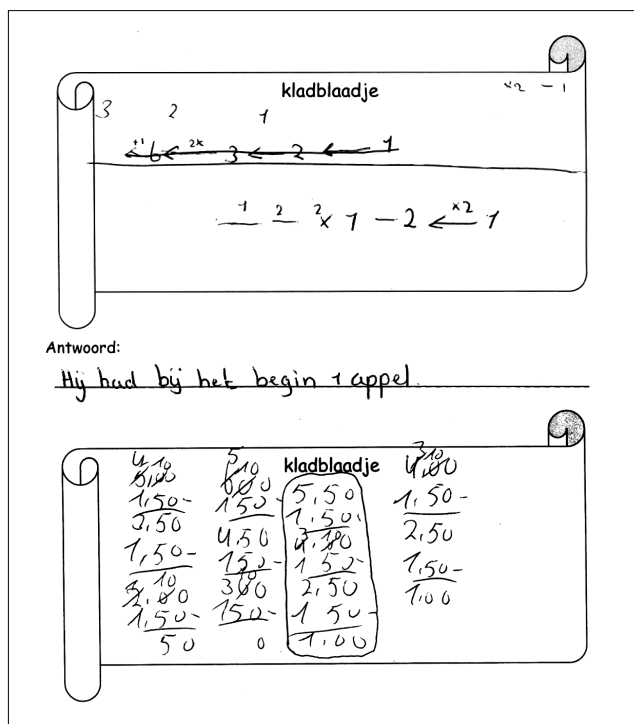 kladblaadje
×2 - 1
3 2 1
+1 6 2x 3 2 1
1 2 2 x 1 - 2 ×2 1
Antwoord:
Hij had bij het begin 1 appel.
kladblaadje
4 10
5,00
1,50-
3,50
1,50-
10
2,00
1,50-
50
5 10
600
150-
4,50
150-
300
150-
0
5,50
1,50-
4,00
1 50-
2,50
1 50-
1,00
3 10
4,00
1,50-
2,50
1,50-
1,00